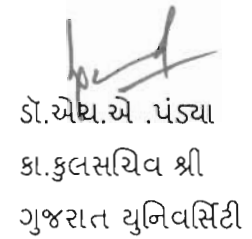 ડૉ.એચ.એ .પંડ્યા
કા.કુલસચિવ શ્રી
ગુજરાત યુનિવર્સિટી